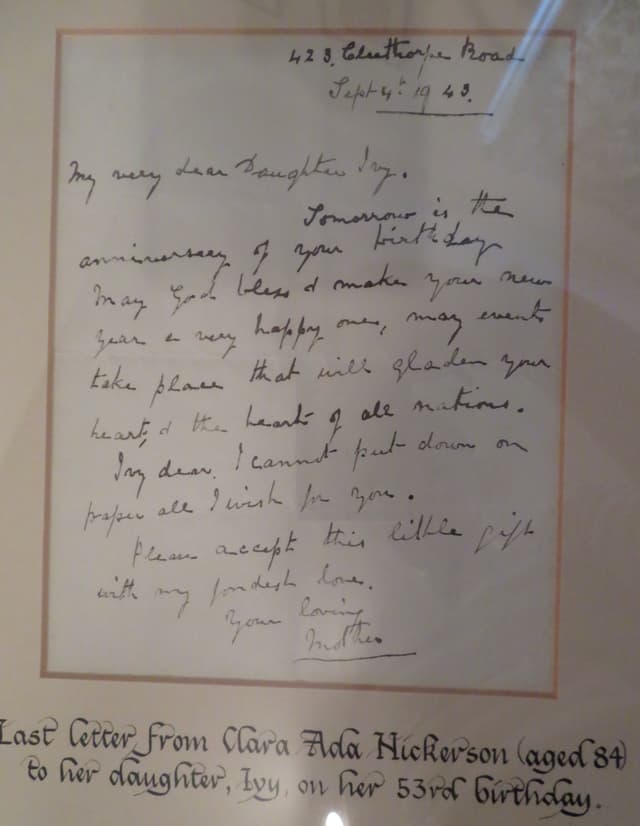 423, Cleethorpe Road
Sept 4th 1943.
My very dear Daughter Ivy.
Tomorrow is the
anniversary of your birthday
May God bless & make your new
year a very happy one, may events
take place that will gladen your
heart, & the heart of all nations.
Ivy dear. I cannot put down on
paper all I wish for you.
Please accept this little gift
with my fondest love.
Your loving
Mother
Last letter from Clara Ada Hickerson (aged 84)
to her daughter, Ivy, on her 53rd birthday.